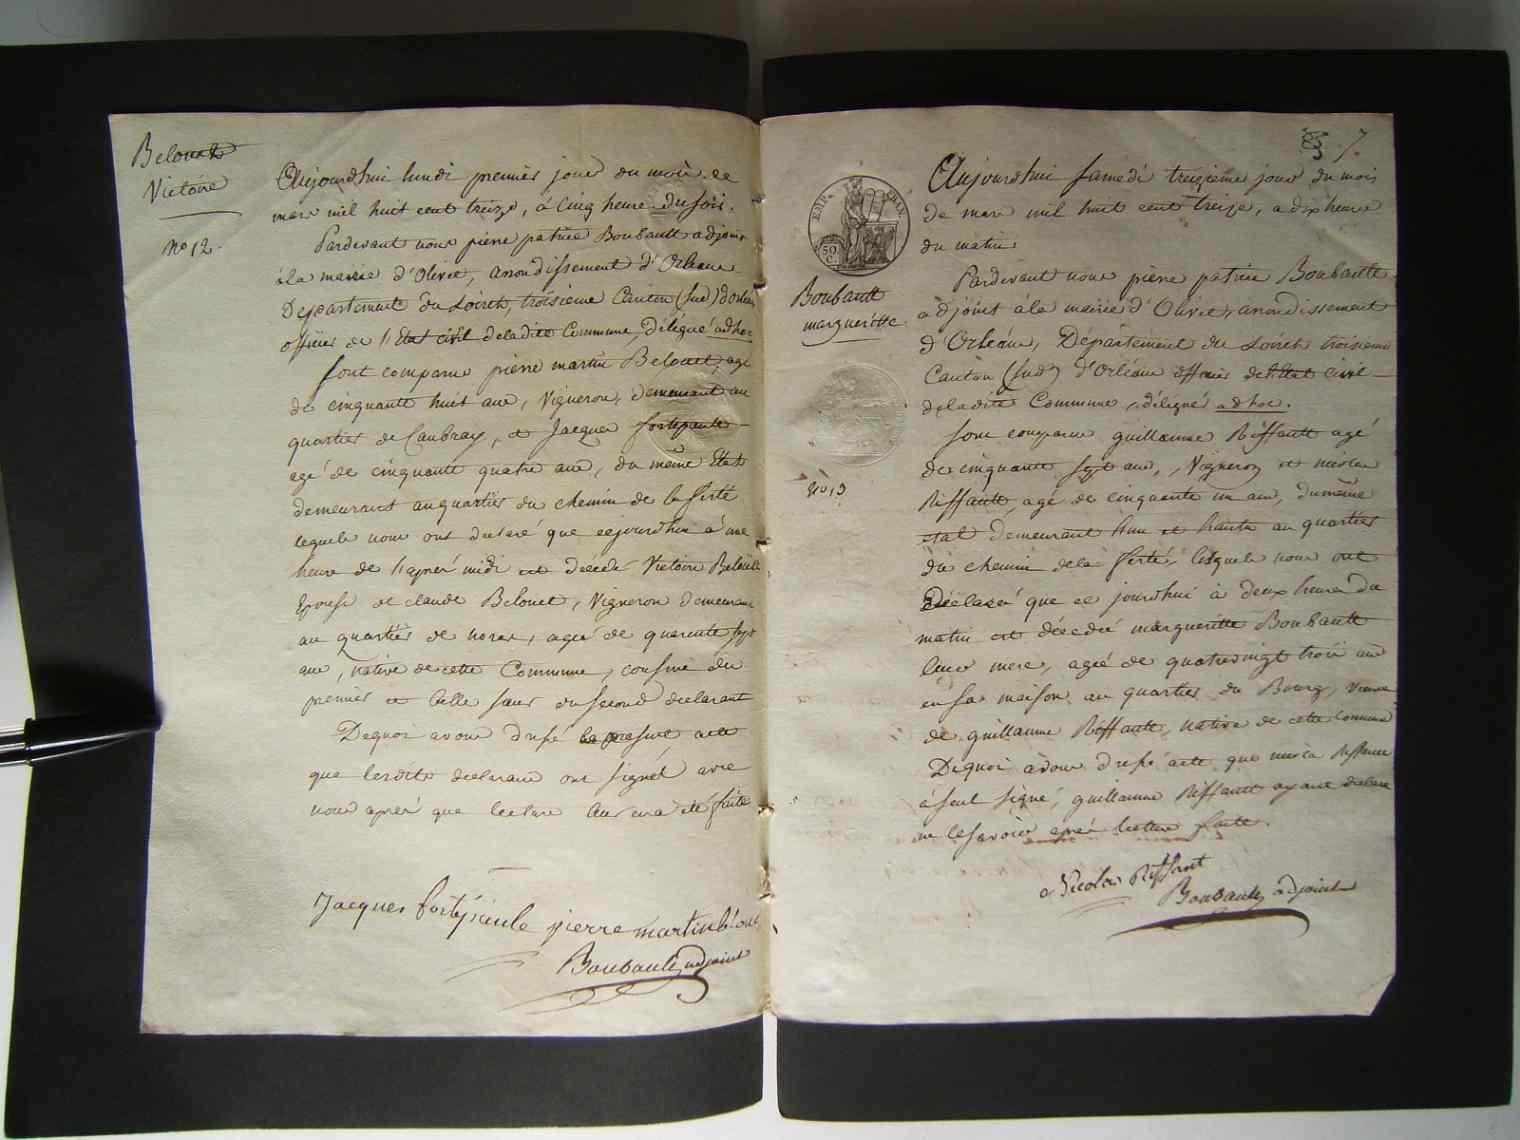 Belouet
Victoire
No 12.
Aujourdhui lundi premier jour du mois de
mars mil huit cent treize, à cinq heure du soir.
Pardevant nous pierre patrice Boubault adjoint
à la mairie d'Olivet, arrondissement d'Orleans
Departement du Loiret, troisieme Canton (sud) d'orleans
officier de l'Etat civil deladite Commune, délégué ad hoc
sont comparus pierre martin Belouet, agé
de cinquante huit ans, Vigneron, demeurant au
quartier de Caubray, et Jacques fortepaule
agé de cinquante quatre ans, du même Etat
demeurant au quartier du chemin de la ferté
lequels nous ont declaré que cejourdhui à une
heure de l'aprés midi est décédé Victoire Belouet
Epouse de claude Belouet, Vigneron demeurant
au quartier de noras, agée de quarente sept
ans, native de cette Commune, cousine du
premier et belle soeur du second declarant
Dequoi avons dressé le present acte
que lesdits declarans ont signé avec
nous aprés que lecture leur en a été faite
Jacques fortepaule pierre martin blouet
Boubault adjoint
7
EMP. FRAN.
50 C.
Boubault
marguerite
No 13
Aujourdhui samedi treizieme jour du mois
de mars mil huit cent treize, a dix heures
du matin
Pardevant nous pierre patrice Boubault
adjoint à la mairie d'Olivet, arrondissement
d'Orléans, Département du Loiret troisieme
Canton (sud) d'Orléans officier de l'Etat civil
deladite Commune, délégué ad hoc.
sont comparus guillaume Riffault agé
de cinquante sept ans, Vigneron et nicolas
Riffault, agé de cinquante un ans, du même
etat demeurant l'un et l'autre au quartier
du chemin dela ferté, lesquels nous ont
Déclaré que ce jourdhui à deux heures du
matin est décédée marguerite Boubault
leur mere, agée de quatrevingt trois ans
en sa maison au quartier du Bourg, veuve
de guillaume Riffault, native de cette commune
Dequoi avons dressé acte que nicolas Riffault
a seul signé, guillaume Riffault ayant declaré
ne le savoir aprés lecture faite.
Nicolas Riffault
Boubault adjoint